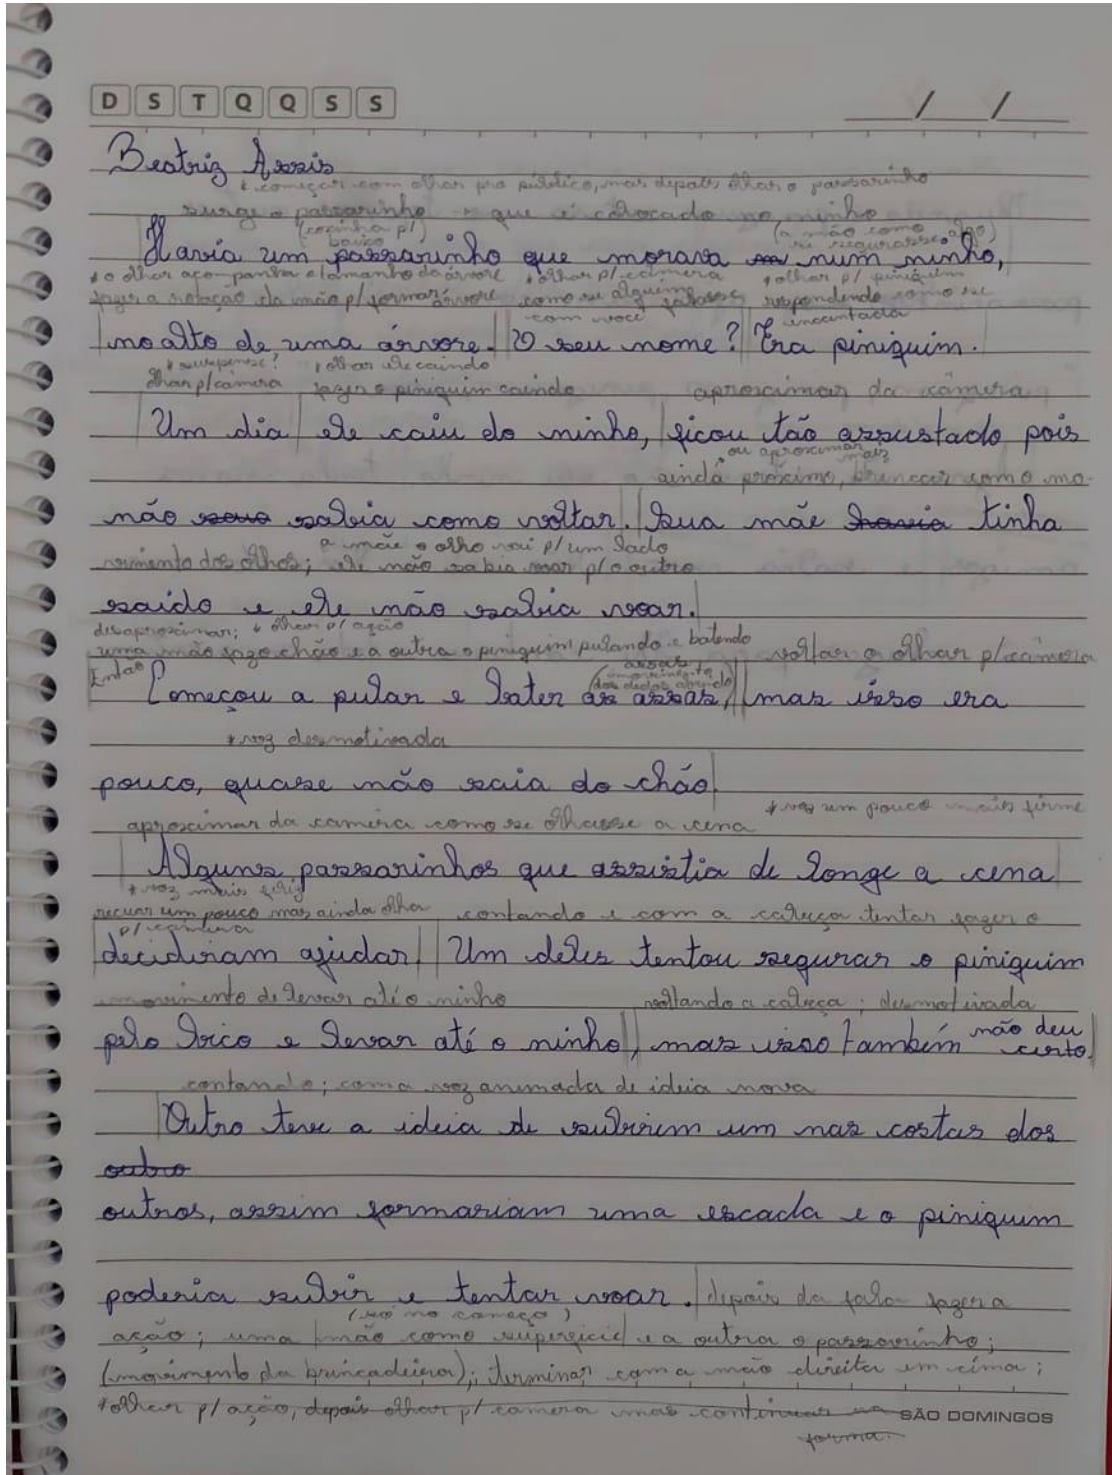 D S T Q Q S S
/ /
Beatriz Assis
* começar com olhar pro público, mas depois olhar o passarinho
surge o passarinho → que é colocado no ninho
(cozinha p/ baixo) (a mão como se segurasse algo)
Havia um passarinho que morava em num ninho,
* o olhar acompanha o tamanho da árvore * olhar p/ câmera * olhar p/ piniquim
fazer a rotação da mão p/ formar árvore como se alguém falasse respondendo como se
com você encantada
no alto de uma árvore. O seu nome? Era piniquim.
* suspense? * olhar ele caindo
olhar p/ câmera fazer o piniquim caindo aproximar da câmera
Um dia ele caiu do ninho, ficou tão assustado pois
* ou aproximar mais
ainda próximo, brincar como mo-
não sabia como voltar. Sua mãe havia tinha
a mãe o olho vai p/ um lado
vimento dos olhos; ele não sabia voar p/ o outro
saido e ele não sabia voar.
desaproximar; * olhar p/ ação
uma mão faz o chão e a outra o piniquim pulando e batendo voltar o olhar p/ câmera
asas (movimento dos dedos abrindo)
Então Começou a pular e bater as assas, mas isso era
* voz desmotivada
pouco, quase não saia do chão
* voz um pouco mais firme
aproximar da camera como se olhasse a cena
Alguns passarinhos que assistia de longe a cena
* voz mais feliz
recuar um pouco mas ainda olha contando e com a cabeça tentar fazer o
p/ câmera
decidiram ajudar. Um deles tentou segurar o piniquim
movimento de levar até o ninho voltando a cabeça; desmotivada
pelo bico e levar até o ninho, mas isso também não deu certo.
contando; com a voz animada de ideia nova
Outro teve a ideia de subirem um nas costas dos
outro
outros, assim formariam uma escada e o piniquim
poderia subir e tentar voar. depois da fala fazer a
(só no começo)
ação; uma mão como superfície e a outra o passarinho;
(movimento da brincadeira); terminar com a mão direita em cima;
* olhar p/ ação, depois olhar p/ camera mas continuar na
forma.
SÃO DOMINGOS